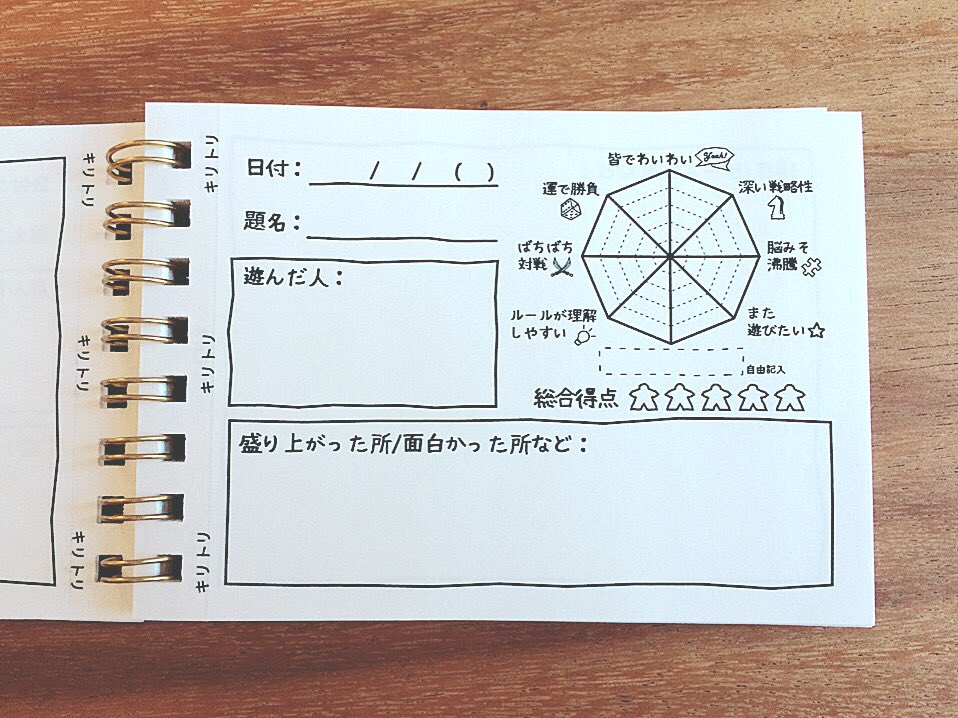 日付： / / ( )
題名：
遊んだ人：
皆でわいわい Yeah!
深い戦略性
脳みそ
沸騰
また
遊びたい
自由記入
ルールが理解
しやすい
ばちばち
対戦
運で勝負
総合得点
盛り上がった所/面白かった所など：
キリトリ
キリトリ
キリトリ
キリトリ
キリトリ
キリトリ